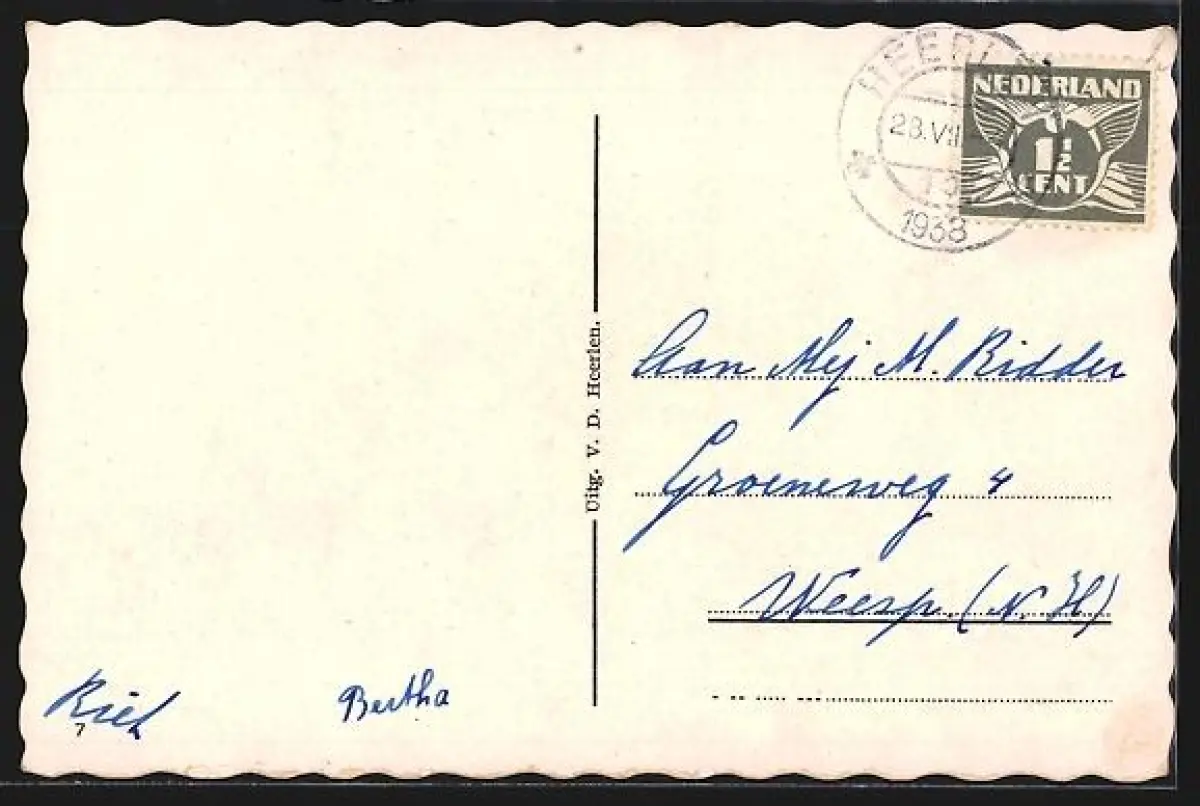 HEERLEN
28.VII
1938
NEDERLAND
1½
CENT
Uitg. V. D. Heerlen.
Aan Mej M. Ridder
Groeneweg 4
Weesp. (N. H)
Riet
Bertha
7